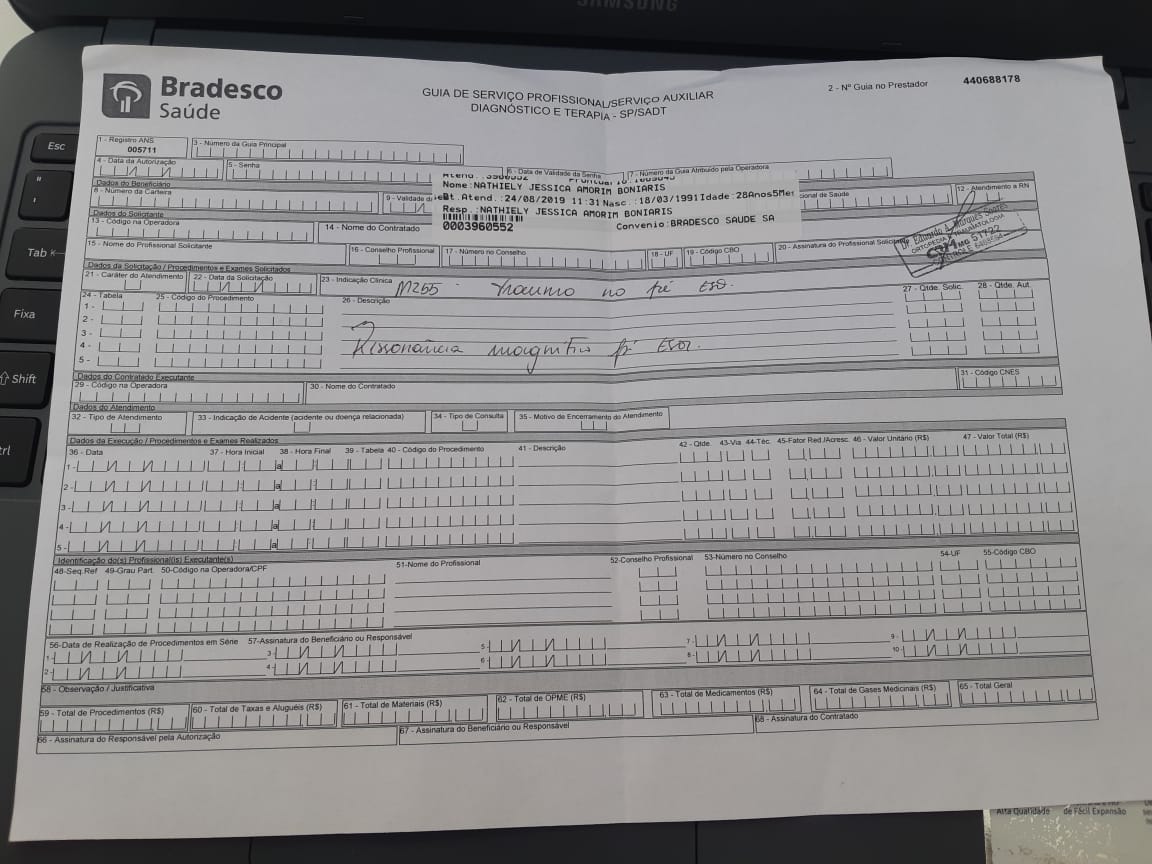 SAMSUNG
Bradesco
Saúde
GUIA DE SERVIÇO PROFISSIONAL/SERVIÇO AUXILIAR
DIAGNÓSTICO E TERAPIA - SP/SADT
2 - Nº Guia no Prestador 440688178
1 - Registro ANS 3 - Número da Guia Principal
005711
4 - Data da Autorização 5 - Senha 6 - Data de Validade da Senha 7 - Número da Guia Atribuído pela Operadora
Dados do Beneficiário
8 - Número da Carteira 9 - Validade 12 - Atendimento a RN
Nome:NATHIELY JESSICA AMORIM BONIARIS
Atend.:24/08/2019 11:31 Nasc.:18/03/1991 Idade:28Anos5Mes
Resp.:NATHIELY JESSICA AMORIM BONIARIS
0003960552 Convenio:BRADESCO SAUDE SA
Dados do Solicitante
13 - Código na Operadora 14 - Nome do Contratado
15 - Nome do Profissional Solicitante 16 - Conselho Profissional 17 - Número no Conselho 18 - UF 19 - Código CBO 20 - Assinatura do Profissional Solicitante
ORTOPEDIA E TRAUMATOLOGIA
Dados da Solicitação / Procedimentos e Exames Solicitados
21 - Caráter do Atendimento 22 - Data da Solicitação 23 - Indicação Clínica M255 - trauma no pé ESQ.
24 - Tabela 25 - Código do Procedimento 26 - Descrição 27 - Qtde. Solic. 28 - Qtde. Aut.
1 -
2 -
3 -
4 -
5 -
Ressonância magnética pé ESQ.
Dados do Contratado Executante
29 - Código na Operadora 30 - Nome do Contratado 31 - Código CNES
Dados do Atendimento
32 - Tipo de Atendimento 33 - Indicação de Acidente (acidente ou doença relacionada) 34 - Tipo de Consulta 35 - Motivo de Encerramento do Atendimento
Dados da Execução / Procedimentos e Exames Realizados
36 - Data 37 - Hora Inicial 38 - Hora Final 39 - Tabela 40 - Código do Procedimento 41 - Descrição 42 - Qtde. 43-Via 44-Téc. 45-Fator Red./Acresc. 46 - Valor Unitário (R$) 47 - Valor Total (R$)
1 - a
2 - a
3 - a
4 - a
5 - a
Identificação do(s) Profissional(is) Executante(s)
48-Seq.Ref 49-Grau Part. 50-Código na Operadora/CPF 51-Nome do Profissional 52-Conselho Profissional 53-Número no Conselho 54-UF 55-Código CBO
56-Data de Realização de Procedimentos em Série 57-Assinatura do Beneficiário ou Responsável
1 - 3 - 5 - 7 - 9 -
2 - 4 - 6 - 8 - 10 -
58 - Observação / Justificativa
59 - Total de Procedimentos (R$) 60 - Total de Taxas e Aluguéis (R$) 61 - Total de Materiais (R$) 62 - Total de OPME (R$) 63 - Total de Medicamentos (R$) 64 - Total de Gases Medicinais (R$) 65 - Total Geral
66 - Assinatura do Responsável pela Autorização 67 - Assinatura do Beneficiário ou Responsável 68 - Assinatura do Contratado
Esc
Tab
Fixa
Shift
Alta Qualidade de Fácil Expansão